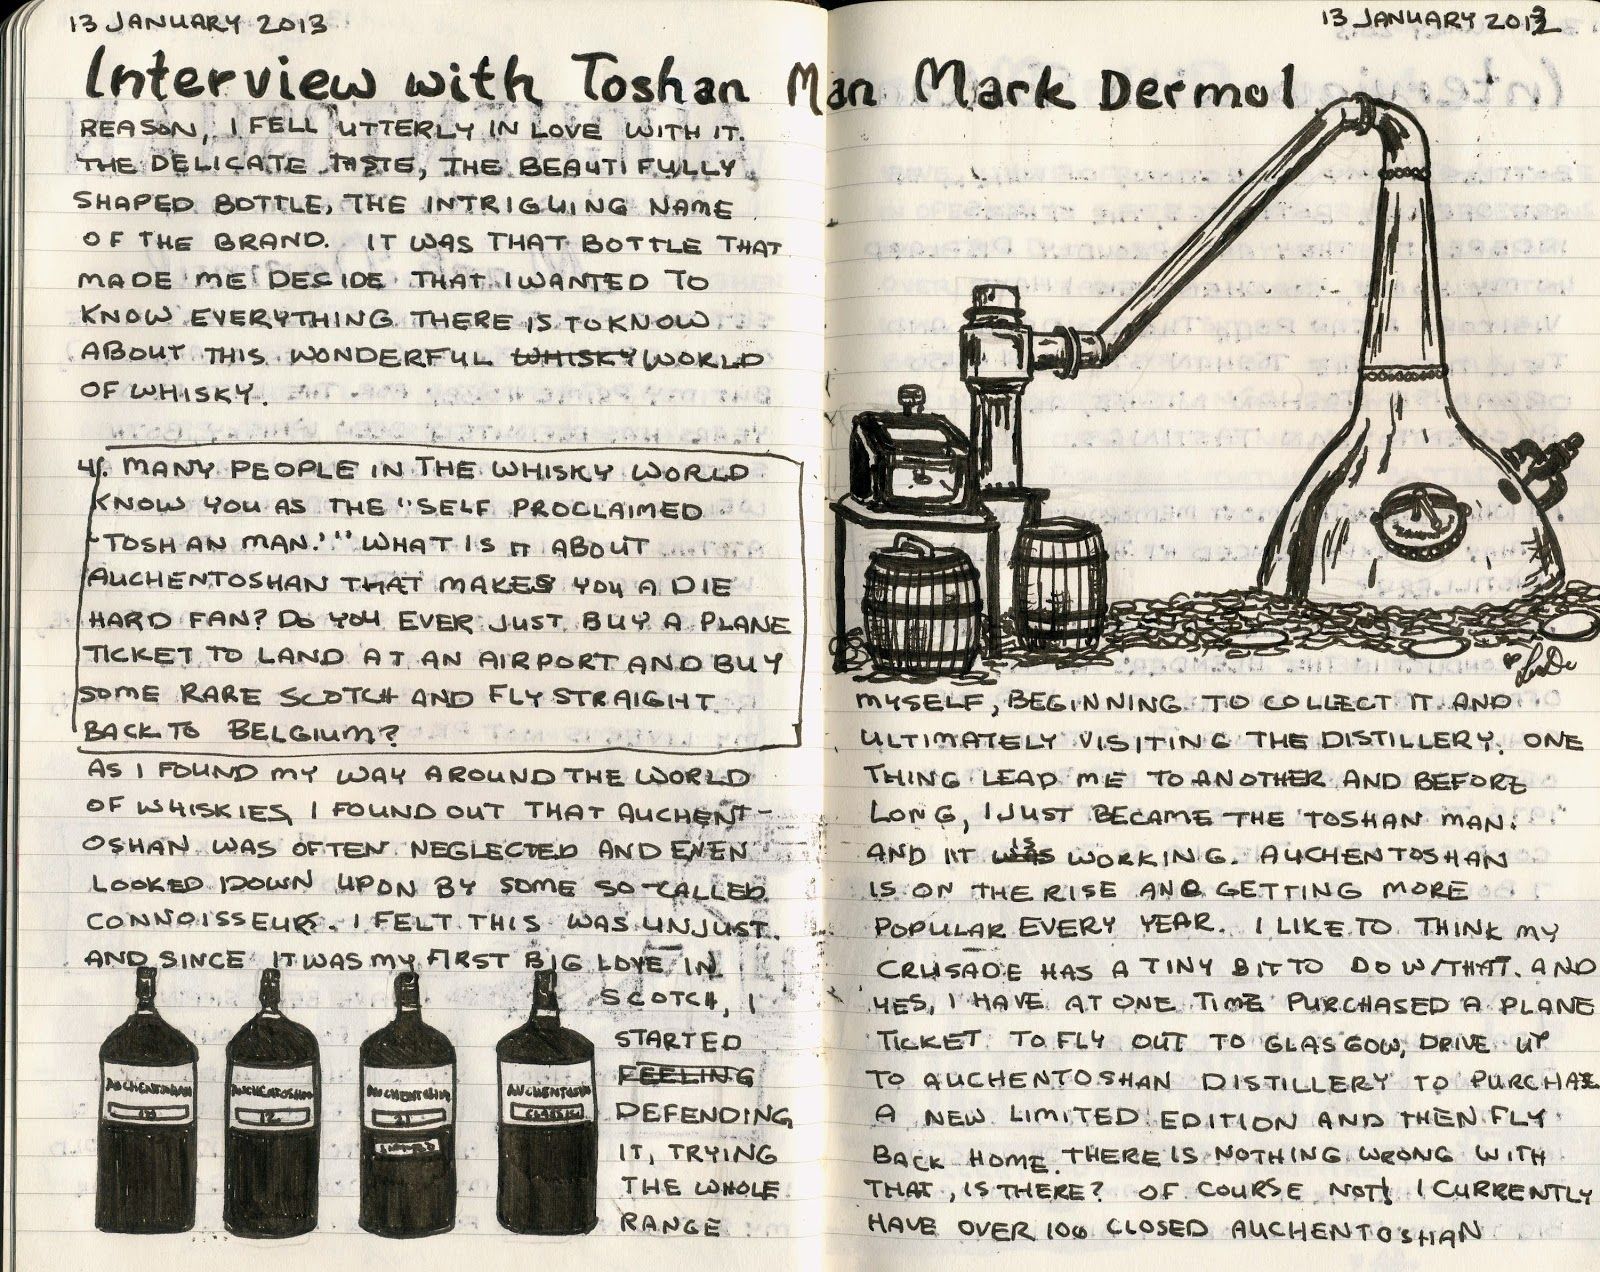 13 JANUARY 2013
Interview with Toshan Man Mark Dermul
REASON, I FELL UTTERLY IN LOVE WITH IT.
THE DELICATE TASTE, THE BEAUTIFULLY
SHAPED BOTTLE, THE INTRIGUING NAME
OF THE BRAND. IT WAS THAT BOTTLE THAT
MADE ME DECIDE THAT I WANTED TO
KNOW EVERYTHING THERE IS TO KNOW
ABOUT THIS WONDERFUL WHISKY WORLD
OF WHISKY.
4. MANY PEOPLE IN THE WHISKY WORLD
KNOW YOU AS THE "SELF PROCLAIMED
'TOSHAN MAN.'" WHAT IS IT ABOUT
AUCHENTOSHAN THAT MAKES YOU A DIE
HARD FAN? DO YOU EVER JUST BUY A PLANE
TICKET TO LAND AT AN AIRPORT AND BUY
SOME RARE SCOTCH AND FLY STRAIGHT
BACK TO BELGIUM?
AS I FOUND MY WAY AROUND THE WORLD
OF WHISKIES, I FOUND OUT THAT AUCHENT-
OSHAN WAS OFTEN NEGLECTED AND EVEN
LOOKED DOWN UPON BY SOME SO-CALLED
CONNOISSEURS. I FELT THIS WAS UNJUST.
AND SINCE IT WAS MY FIRST BIG LOVE IN
SCOTCH, I
STARTED
FEELING
DEFENDING
IT, TRYING
THE WHOLE
RANGE
AUCHENTOSHAN
AUCHENTOSHAN
12
AUCHENTOSHAN
21
LIMITED
AUCHENTOSHAN
CLASSIC
13 JANUARY 2013
MYSELF, BEGINNING TO COLLECT IT AND
ULTIMATELY VISITING THE DISTILLERY. ONE
THING LEAD ME TO ANOTHER AND BEFORE
LONG, I JUST BECAME THE TOSHAN MAN.
AND IT WAS IS WORKING. AUCHENTOSHAN
IS ON THE RISE AND GETTING MORE
POPULAR EVERY YEAR. I LIKE TO THINK MY
CRUSADE HAS A TINY BIT TO DO W/THAT. AND
YES, I HAVE AT ONE TIME PURCHASED A PLANE
TICKET TO FLY OUT TO GLASGOW, DRIVE UP
TO AUCHENTOSHAN DISTILLERY TO PURCHASE
A NEW LIMITED EDITION AND THEN FLY
BACK HOME. THERE IS NOTHING WRONG WITH
THAT, IS THERE? OF COURSE NOT! I CURRENTLY
HAVE OVER 100 CLOSED AUCHENTOSHAN